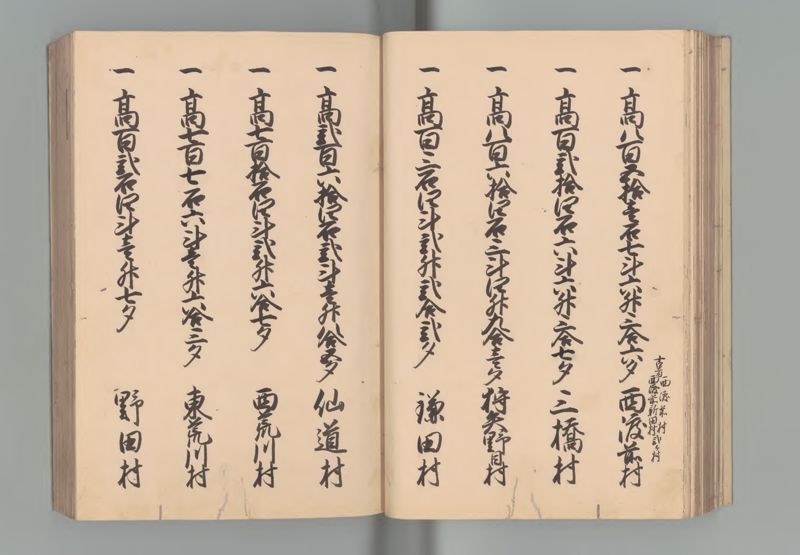 一高八百五拾壱石七斗六升三合六夕 西渡前村
古者西渡前村
西渡前新田村弐ヶ村
一高百弐拾四石六斗六升三合七夕 三橋村
一高八百六拾四石三斗四升九合壱夕 狩矢野目村
一高百三石四斗弐升弐合弐夕 鎌田村
一高弐百六拾四石弐斗壱升八合五夕 仙道村
一高七百拾石四斗弐升六合七夕 西荒川村
一高七百七石六斗壱升六合三夕 東荒川村
一高百弐石四斗壱升七夕 野田村